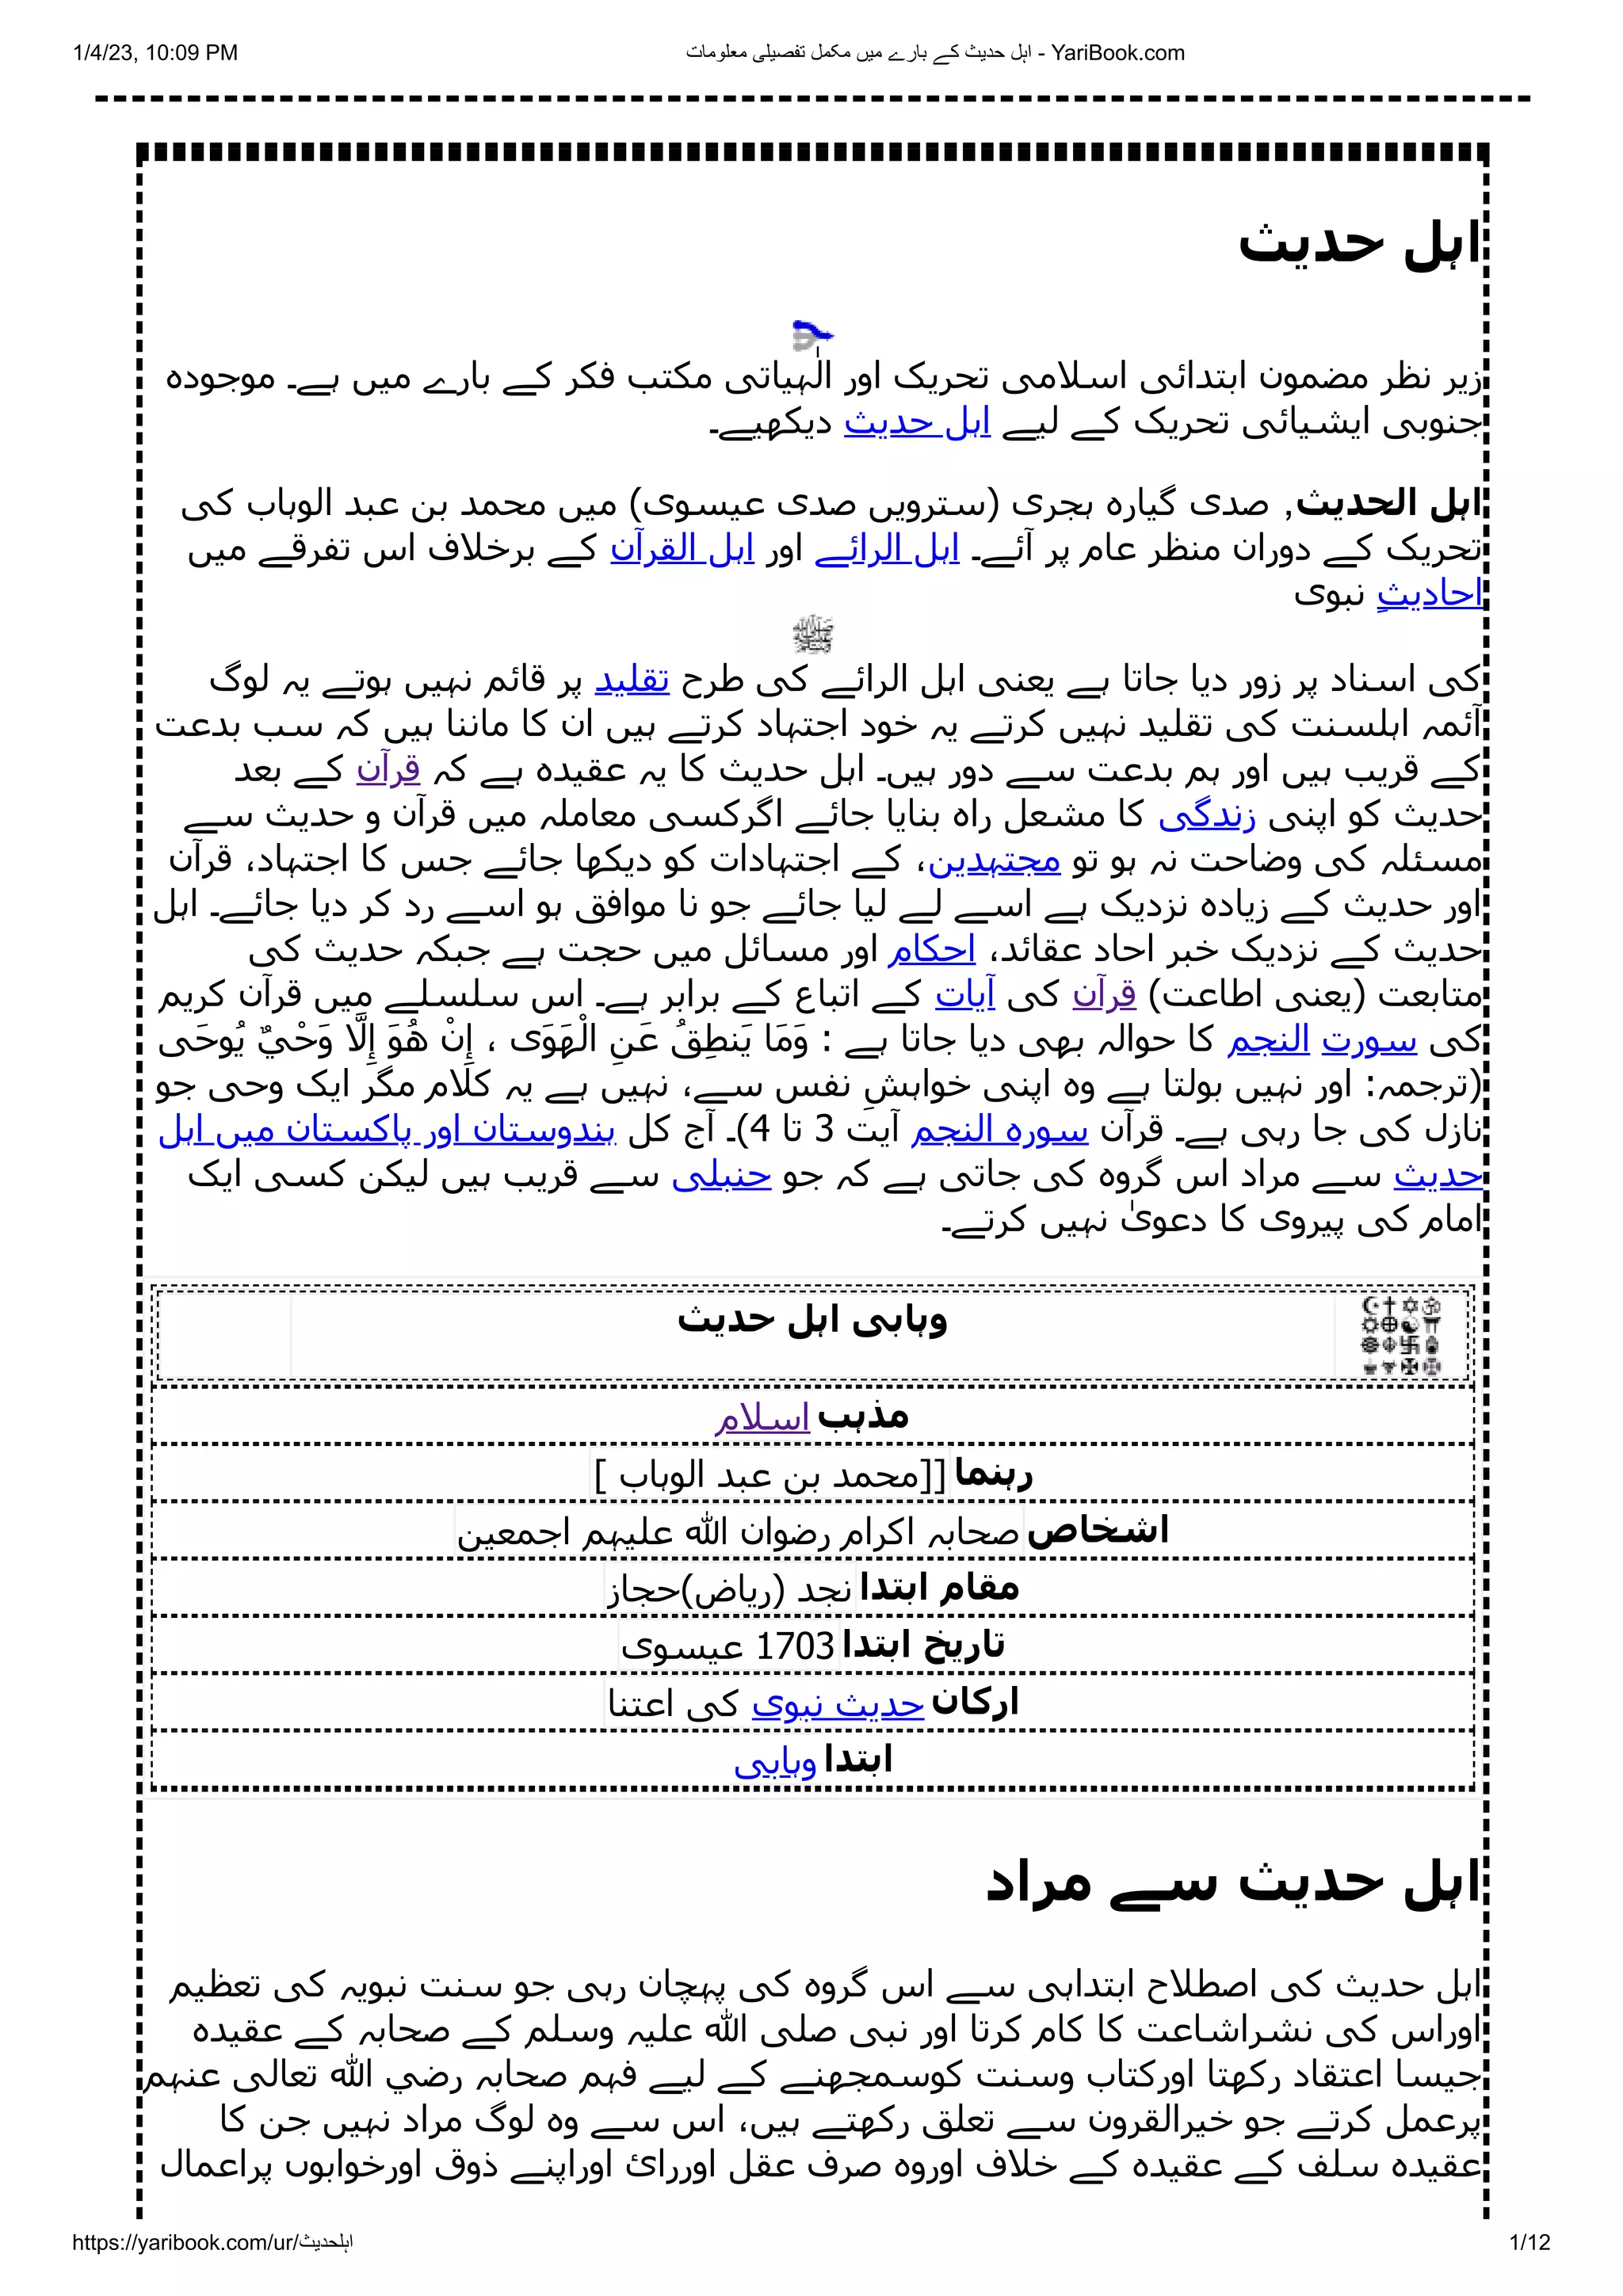 1/4/23, 10:09 PM
اہل حدیث کے بارے میں مکمل تفصیلی معلومات - YariBook.com
اہل حدیث
زیر نظر مضمون ابتدائی اسلامی تحریک اور الٰہیاتی مکتب فکر کے بارے میں ہے۔ موجودہ
جنوبی ایشیائی تحریک کے لیے اہل حدیث دیکھیے۔
اہل الحدیث, صدی گیارہ ہجری (سترویں صدی عیسوی) میں محمد بن عبد الوہاب کی
تحریک کے دوران منظر عام پر آئے۔ اہل الرائے اور اہل القرآن کے برخلاف اس تفرقے میں
احادیثٍ نبوی
ﷺ
کی اسناد پر زور دیا جاتا ہے یعنی اہل الرائے کی طرح تقلید پر قائم نہیں ہوتے یہ لوگ
آئمہ اہلسنت کی تقلید نہیں کرتے یہ خود اجتہاد کرتے ہیں ان کا ماننا ہیں کہ سب بدعت
کے قریب ہیں اور ہم بدعت سے دور ہیں۔ اہل حدیث کا یہ عقیدہ ہے کہ قرآن کے بعد
حدیث کو اپنی زندگی کا مشعل راہ بنایا جائے اگرکسی معاملہ میں قرآن و حدیث سے
مسئلہ کی وضاحت نہ ہو تو مجتہدین، کے اجتہادات کو دیکھا جائے جس کا اجتہاد، قرآن
اور حدیث کے زیادہ نزدیک ہے اسے لے لیا جائے جو نا موافق ہو اسے رد کر دیا جائے۔ اہل
حدیث کے نزدیک خبر احاد عقائد، احکام اور مسائل میں حجت ہے جبکہ حدیث کی
متابعت (یعنی اطاعت) قرآن کی آیات کے اتباع کے برابر ہے۔ اس سلسلے میں قرآن کریم
کی سورت النجم کا حوالہ بھی دیا جاتا ہے : وَمَا يَنطِقُ عَنِ الْهَوَى ، إِنْ هُوَ إِلَّا وَحْيٌ يُوحَى
(ترجمہ: اور نہیں بولتا ہے وہ اپنی خواہشِ نفس سے، نہیں ہے یہ کلام مگر ایک وحی جو
نازل کی جا رہی ہے۔ قرآن سورہ النجم آیت 3 تا 4)۔ آج کل ہندوستان اور پاکستان میں اہل
حدیث سے مراد اس گروہ کی جاتی ہے کہ جو حنبلی سے قریب ہیں لیکن کسی ایک
امام کی پیروی کا دعویٰ نہیں کرتے۔
وہابی اہل حدیث
مذہب اسلام
رہنما [[محمد بن عبد الوہاب ]
اشخاص صحابہ اکرام رضوان اللہ علیہم اجمعین
مقام ابتدا نجد (ریاض)حجاز
تاریخ ابتدا 1703 عیسوی
ارکان حدیث نبوی کی اعتنا
ابتدا وہابی
اہل حدیث سے مراد
اہل حدیث کی اصطلاح ابتداہی سے اس گروہ کی پہچان رہی جو سنت نبویہ کی تعظیم
اوراس کی نشراشاعت کا کام کرتا اور نبی صلی اللہ علیہ وسلم کے صحابہ کے عقیدہ
جیسا اعتقاد رکھتا اورکتاب وسنت کوسمجھنے کے لیے فہم صحابہ رضي اللہ تعالی عنہم
پرعمل کرتے جو خیرالقرون سے تعلق رکھتے ہیں، اس سے وہ لوگ مراد نہیں جن کا
عقیدہ سلف کے عقیدہ کے خلاف اوروہ صرف عقل اوررائ اوراپنے ذوق اورخوابوں پراعمال
https://yaribook.com/ur/اہلحدیث
1/12